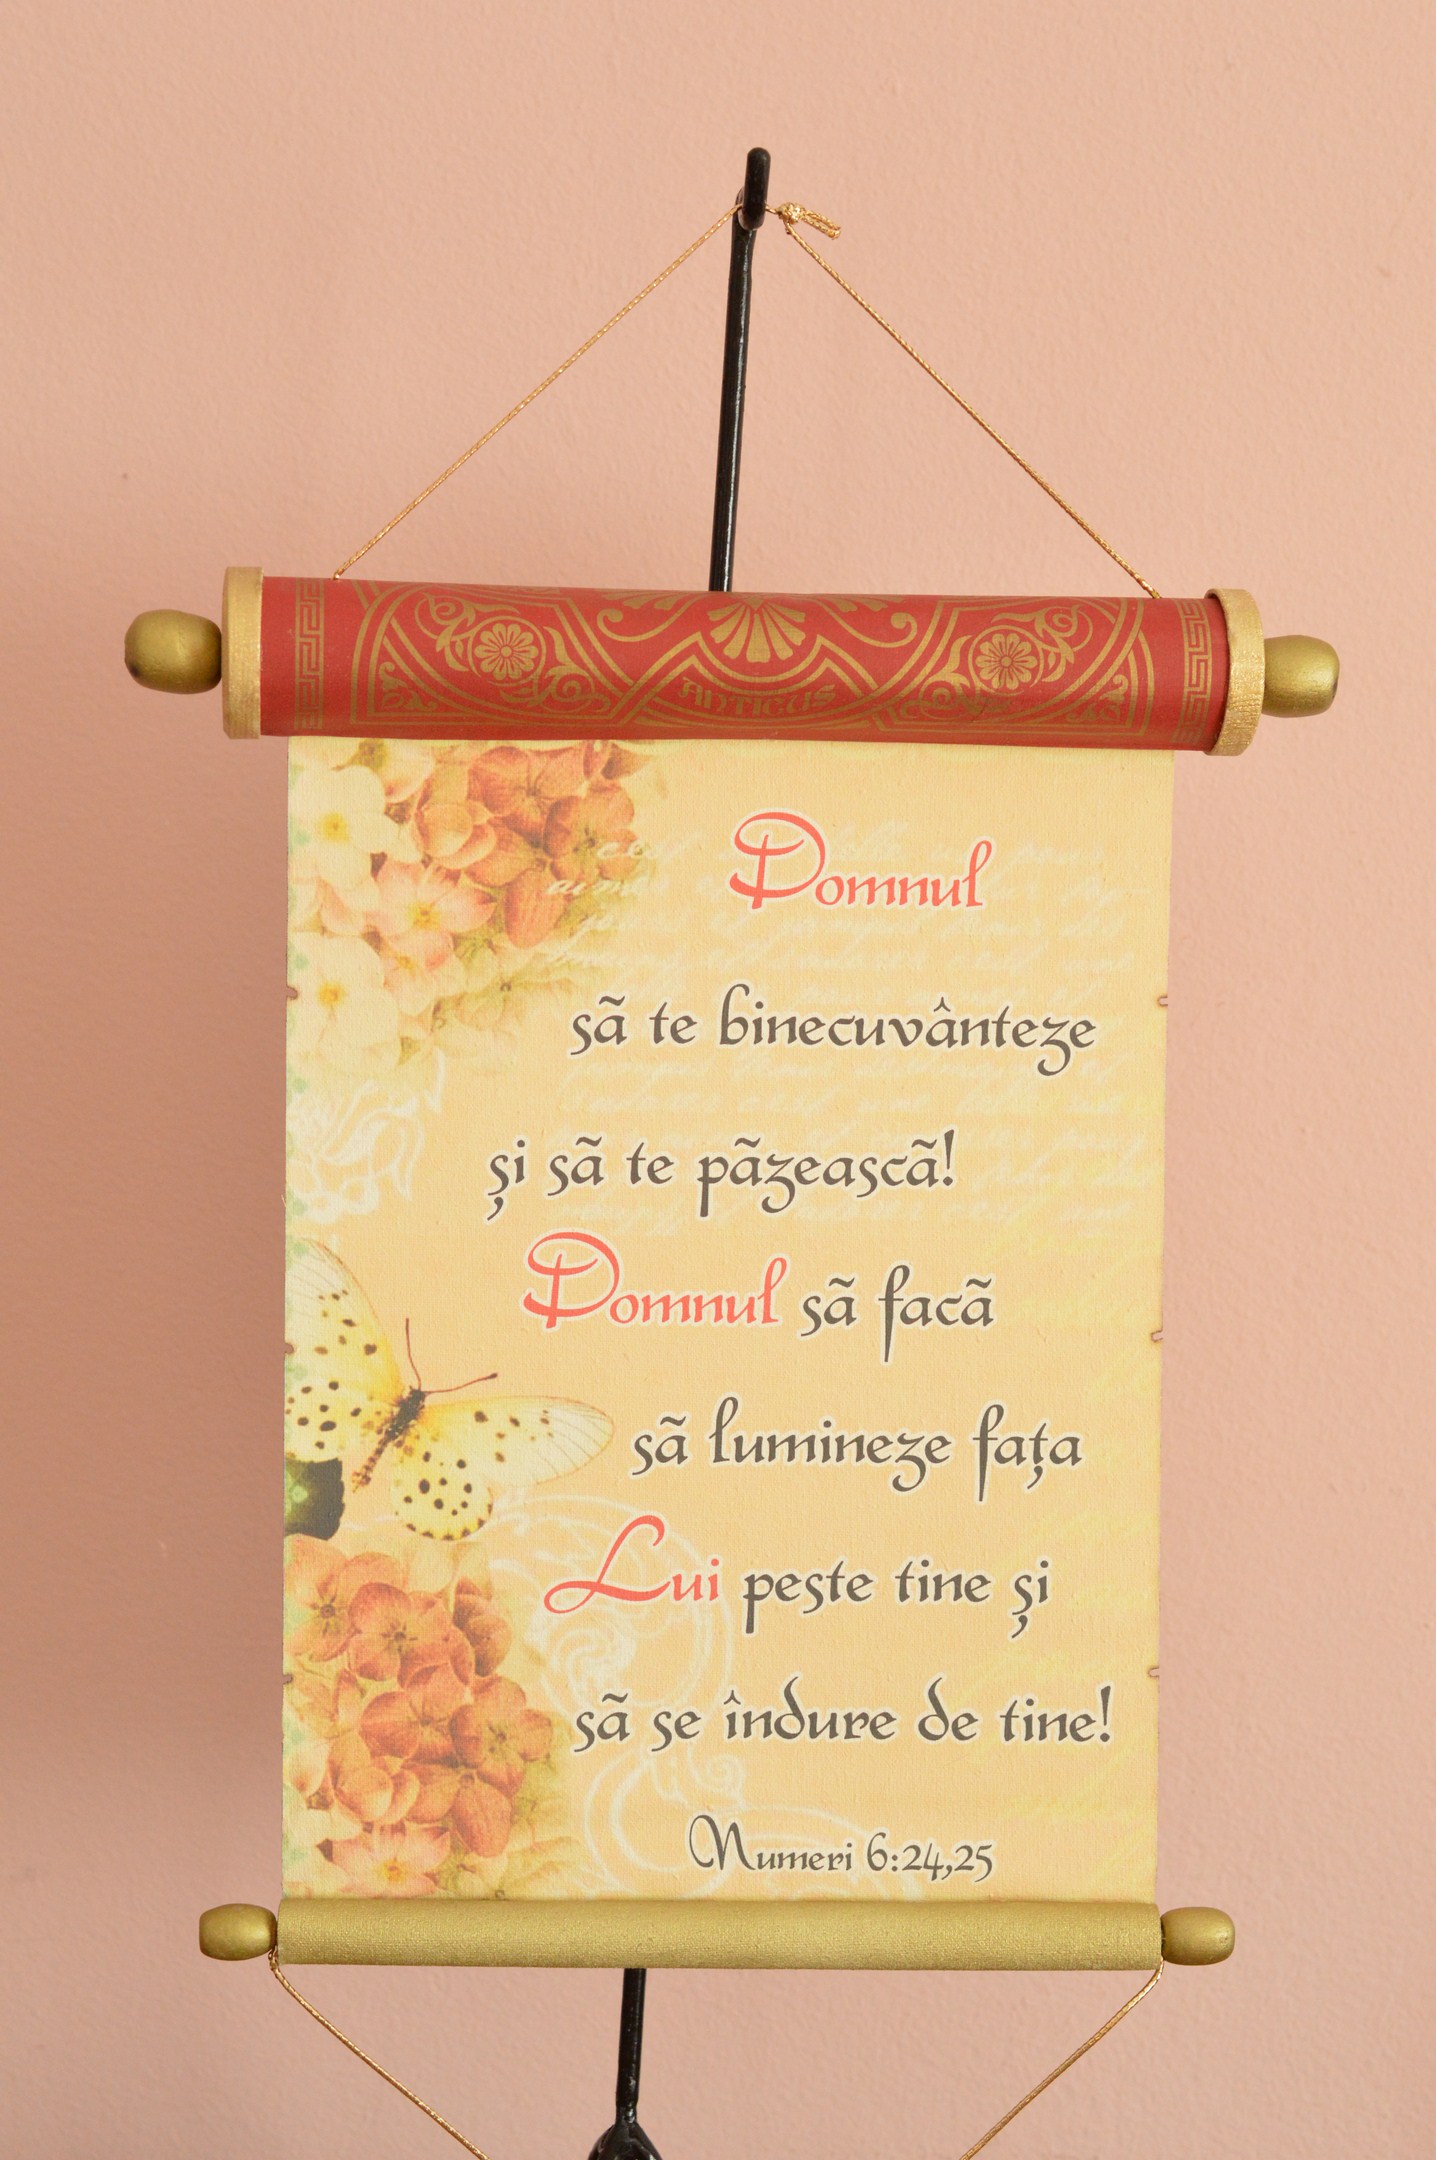 ANTICUS
Domnul
sã te binecuvânteze
şi sã te pãzeascã!
Domnul sã facã
sã lumineze faţa
Lui peste tine şi
sã se îndure de tine!
Numeri 6:24,25